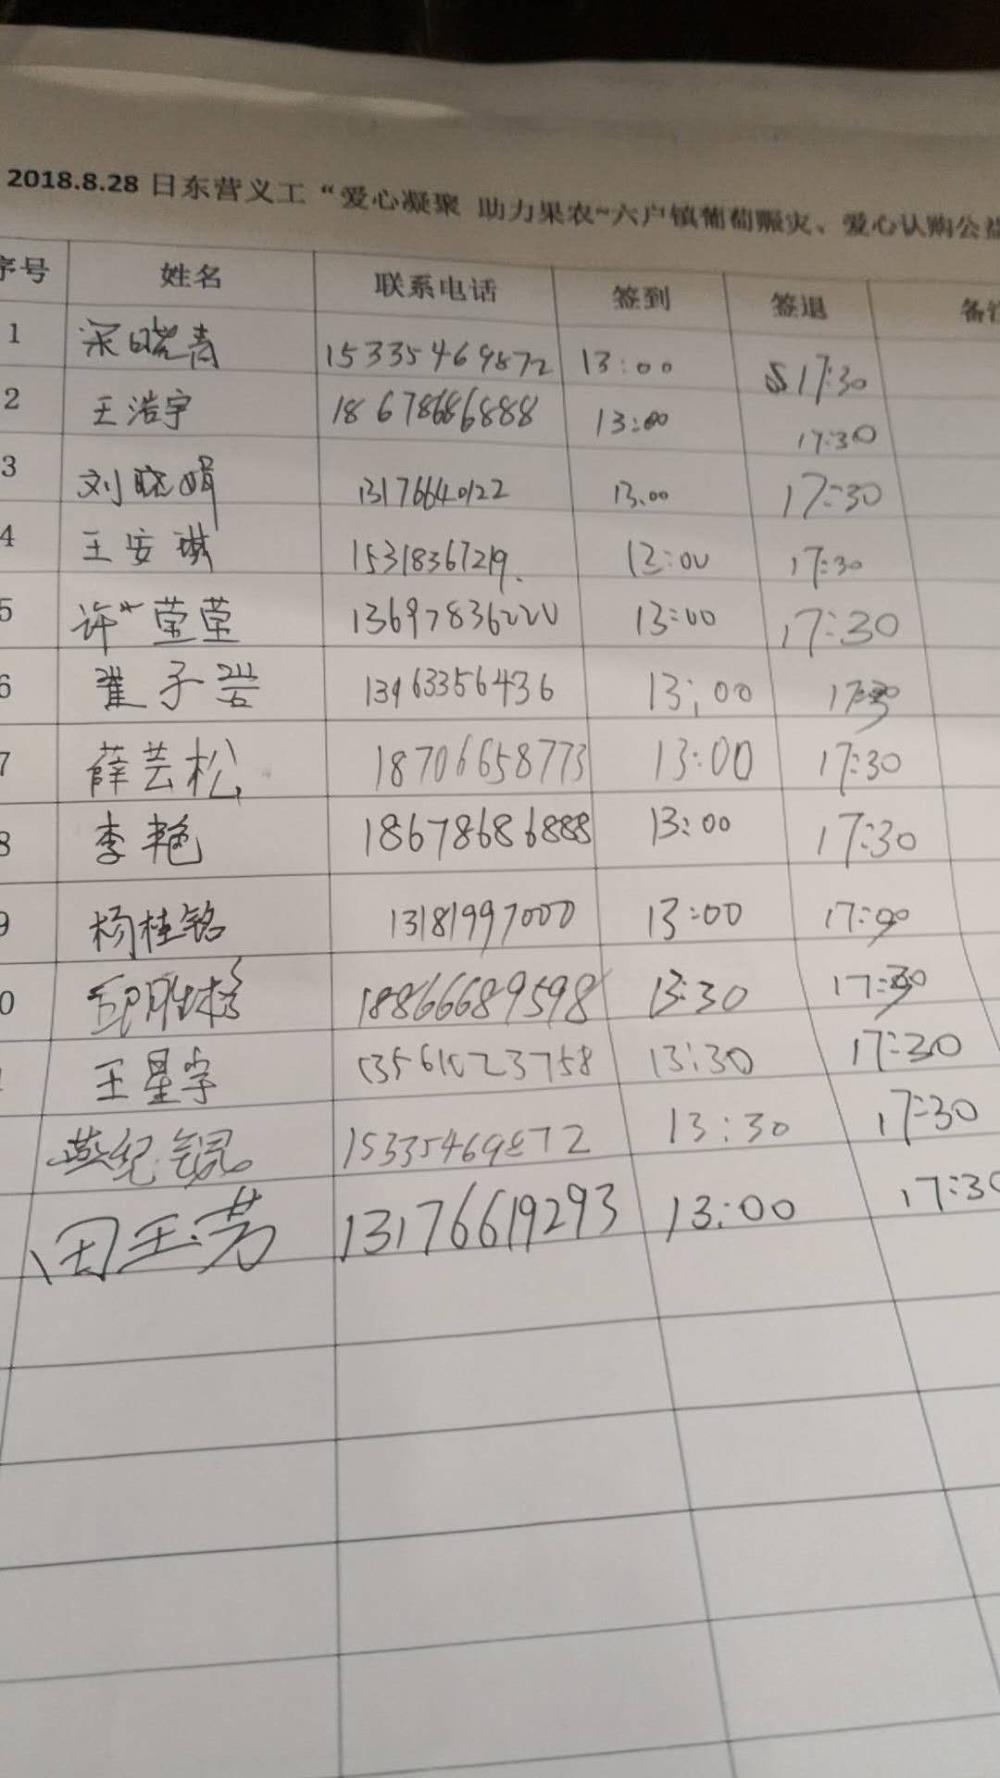 2018.8.28 日东营义工“爱心凝聚 助力果农~六户镇葡萄赈灾、爱心认购公益
序号 姓名 联系电话 签到 签退 备注
1 梁晓青 15335469872 13:00 17:30
2 王浩宇 18678686888 13:00 17:30
3 刘晓娟 13176640122 13:00 17:30
4 王安琪 15318367219. 13:00 17:30
5 许莹莹 13697836220 13:00 17:30
6 崔子岩 13963356436 13:00 17:30
7 薛芸松 18706658773 13:00 17:30
8 李艳 18678686888 13:00 17:30
9 杨桂铭 13181997000 13:00
0 18866689598 13:30 17:30
王星宇 13561023758 13:30 17:30
燕纪锟 15335469872 13:30 17:30
田玉芳 13176619293 13:00 17:30